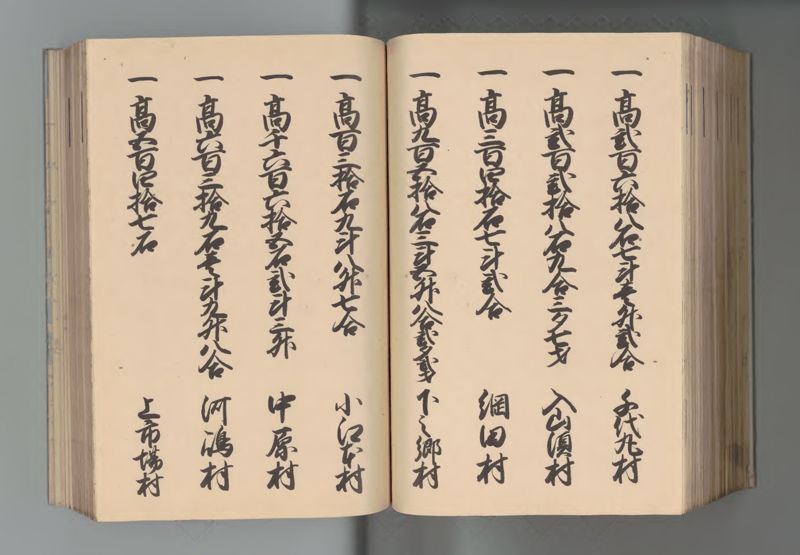 一 高弐百六拾八石七斗壱升弐合 千代丸村
一 高弐百弐拾八石九合三夕七才 入山須村
一 高三百四拾石七斗弐合 綱田村
一 高九百五拾八石三斗五升八合弐夕弐才 下之郷村
一 高百三拾石九斗八升七合 小江本村
一 高千六百六拾五石弐斗三升 中原村
一 高六百三拾九石壱斗九升八合 河嶋村
一 高五百四拾七石 上市場村